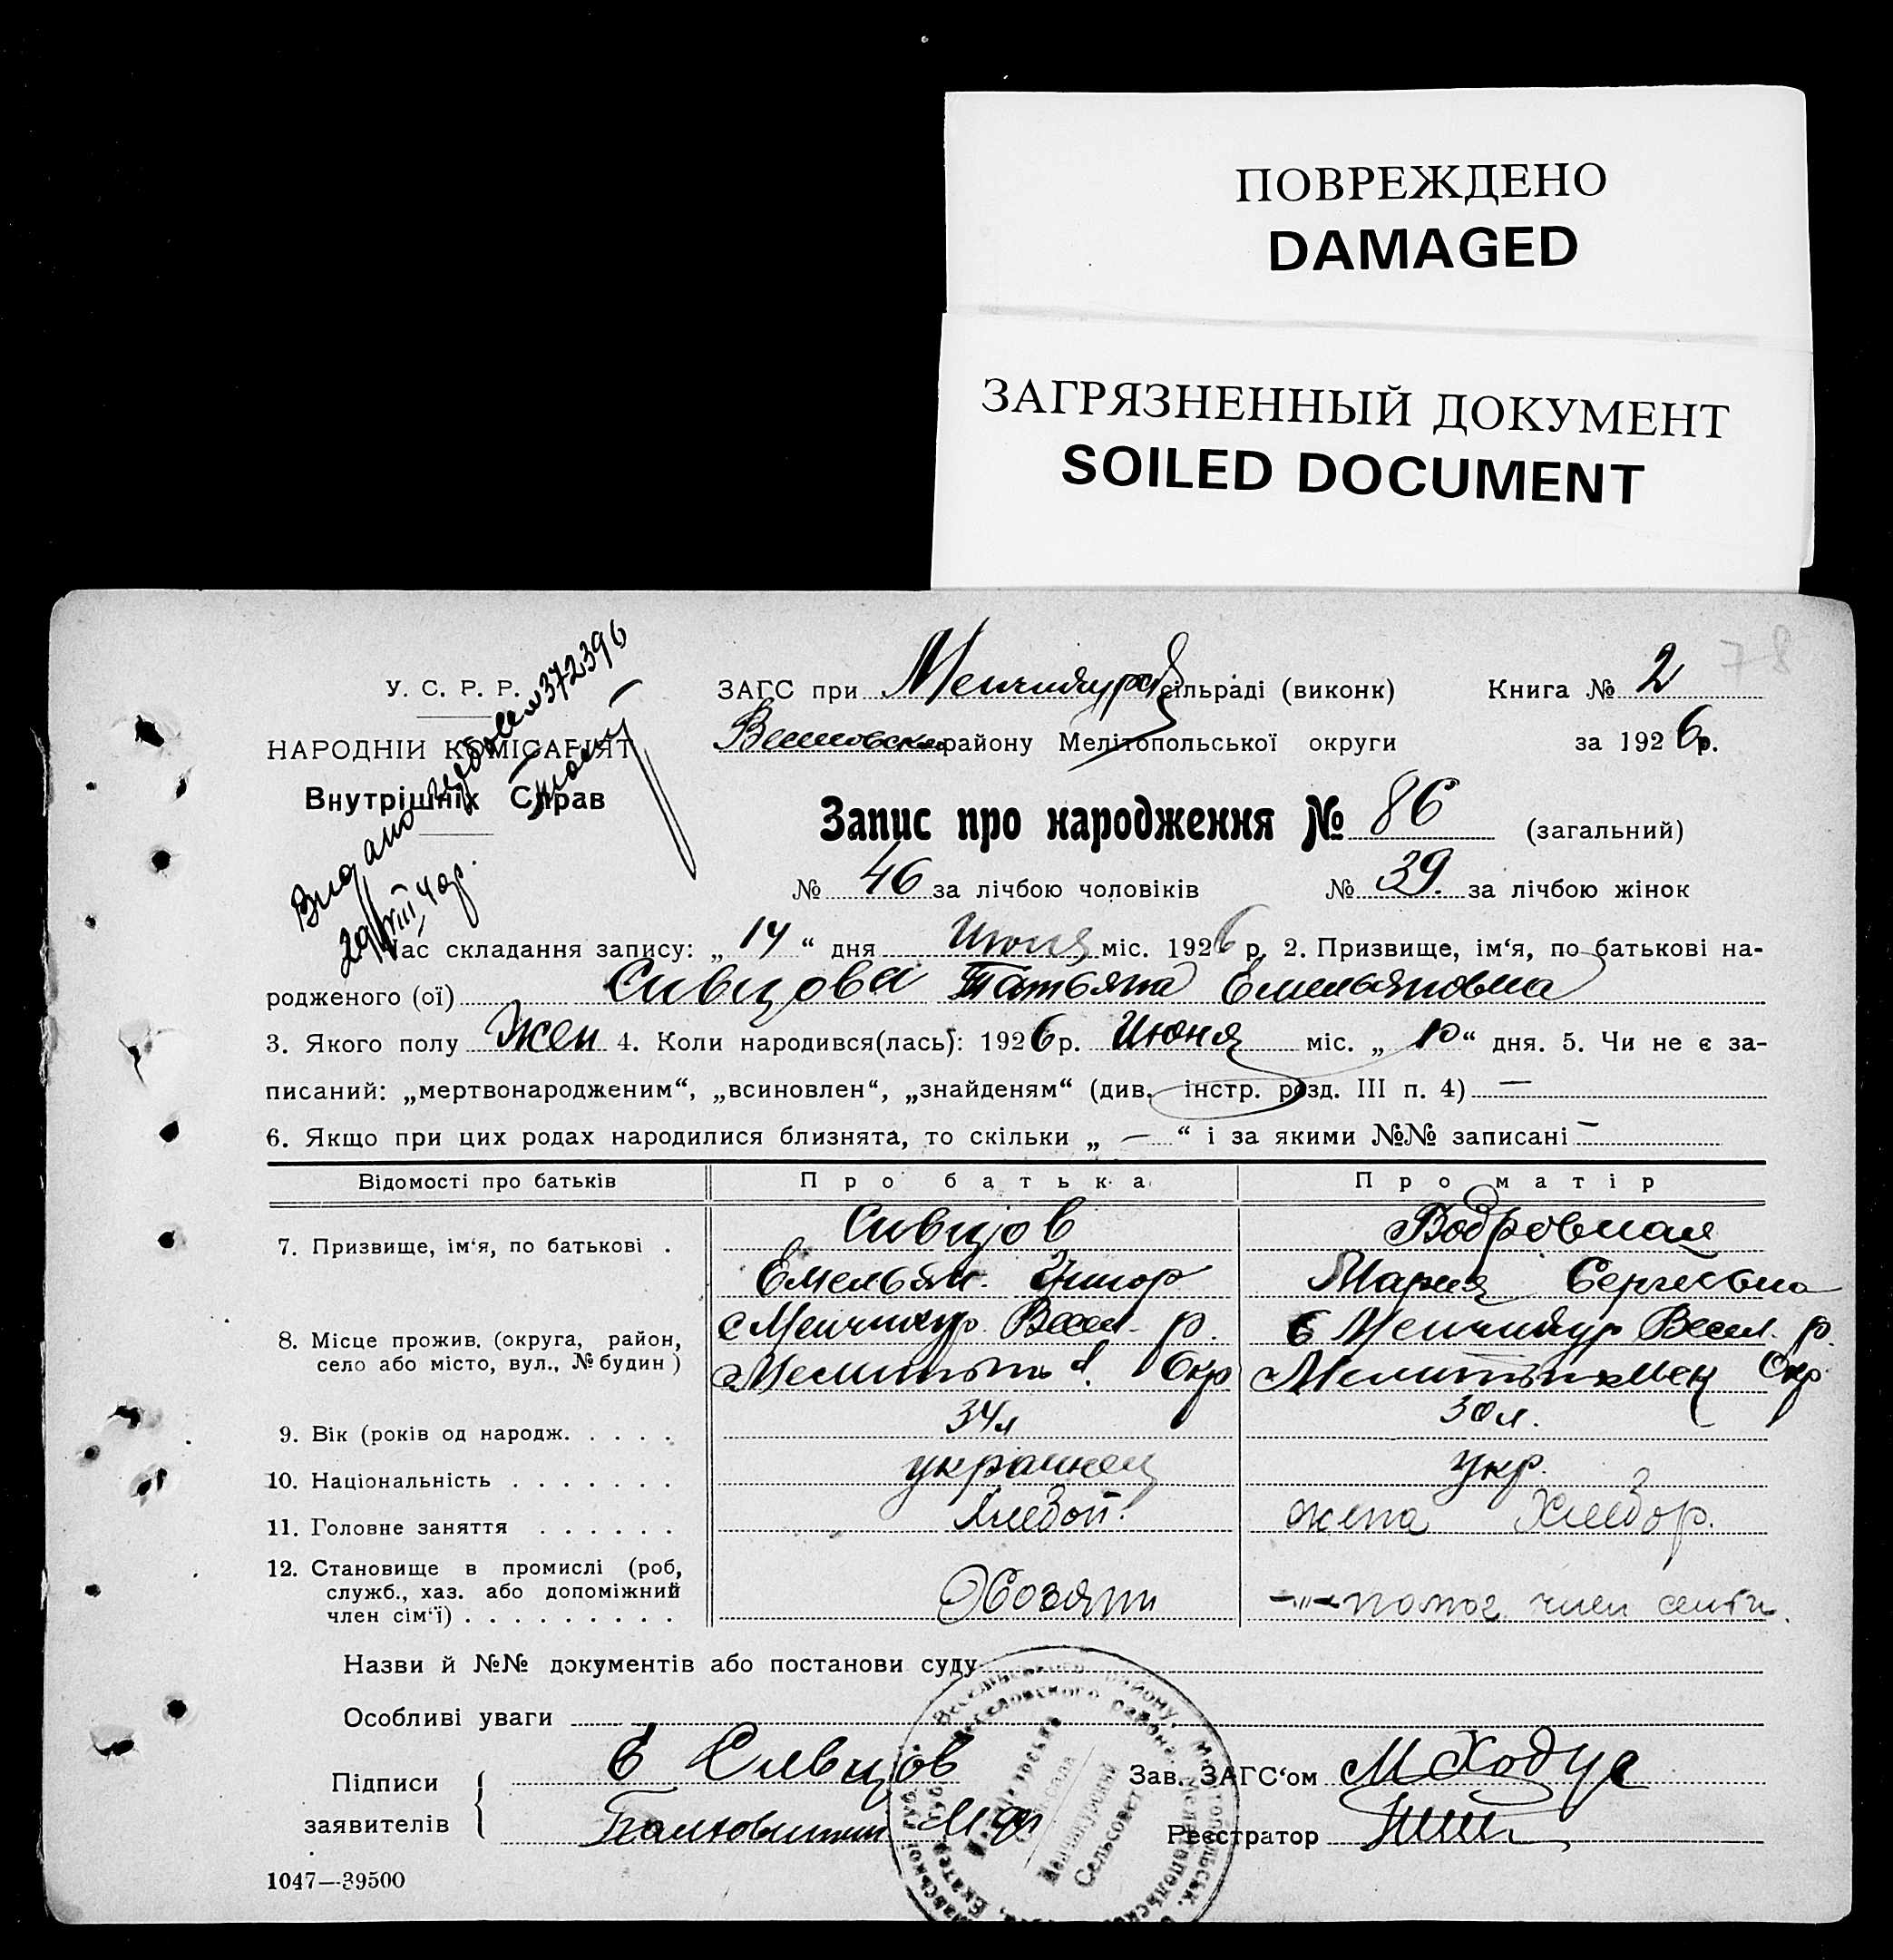 ПОВРЕЖДЕНО
DAMAGED
ЗАГРЯЗНЕННЫЙ ДОКУМЕНТ
SOILED DOCUMENT
78
У. С. Р. Р.
НАРОДНІЙ КОМІСАРІЯТ
Внутрішніх Справ
Видано 372396
29/VIII 49р.
ЗАГС при Менчикур сільраді (виконк) Книга № 2
району Мелітопольської округи за 1926р.
Запис про народження № 86 (загальний)
№ 46 за лічбою чоловіків № 39. за лічбою жінок
час складання запису: „ 14 “ дня Июня міс. 1926 р. 2. Призвище, ім‘я, по батькові на-
родженого (ої) Сивцова Татьяна Емельяновна
3. Якого полу Жен 4. Коли народився(лась): 1926р. Июня міс. „ 10 “ дня. 5. Чи не є за-
писаний: „мертвонародженим“, „всиновлен“, „знайденям“ (див. інстр. розд. III п. 4) —
6. Якщо при цих родах народилися близнята, то скільки „ — “ і за якими №№ записані —
Відомості про батьків Про батька Про матір
7. Призвище, ім‘я, по батькові . Сивцов Бодровная
Емельян Мария Сергеевна
8. Місце прожив. (округа, район, село або місто, вул., № будин ) с Менчикур Весел. р. с Менчикур Весел. р
Мелитоп. Окр Окр
9. Вік (років од народж. . . . . 34л 30л.
10. Національність . . . . . . . украинец укр.
11. Головне заняття . . . . . . Хлебоп. жена Хлебор.
12. Становище в промислі (роб, служб., хаз. або допоміжний член сім‘ї) . . . . . . . . . Хозяин —„— помог член семи.
Назви й №№ документів або постанови суду
Особливі уваги
Підписи заявителів Е Сивцов
Зав. ЗАГС‘ом М Ходус
Реєстратор
Сельсовет
1047—39500